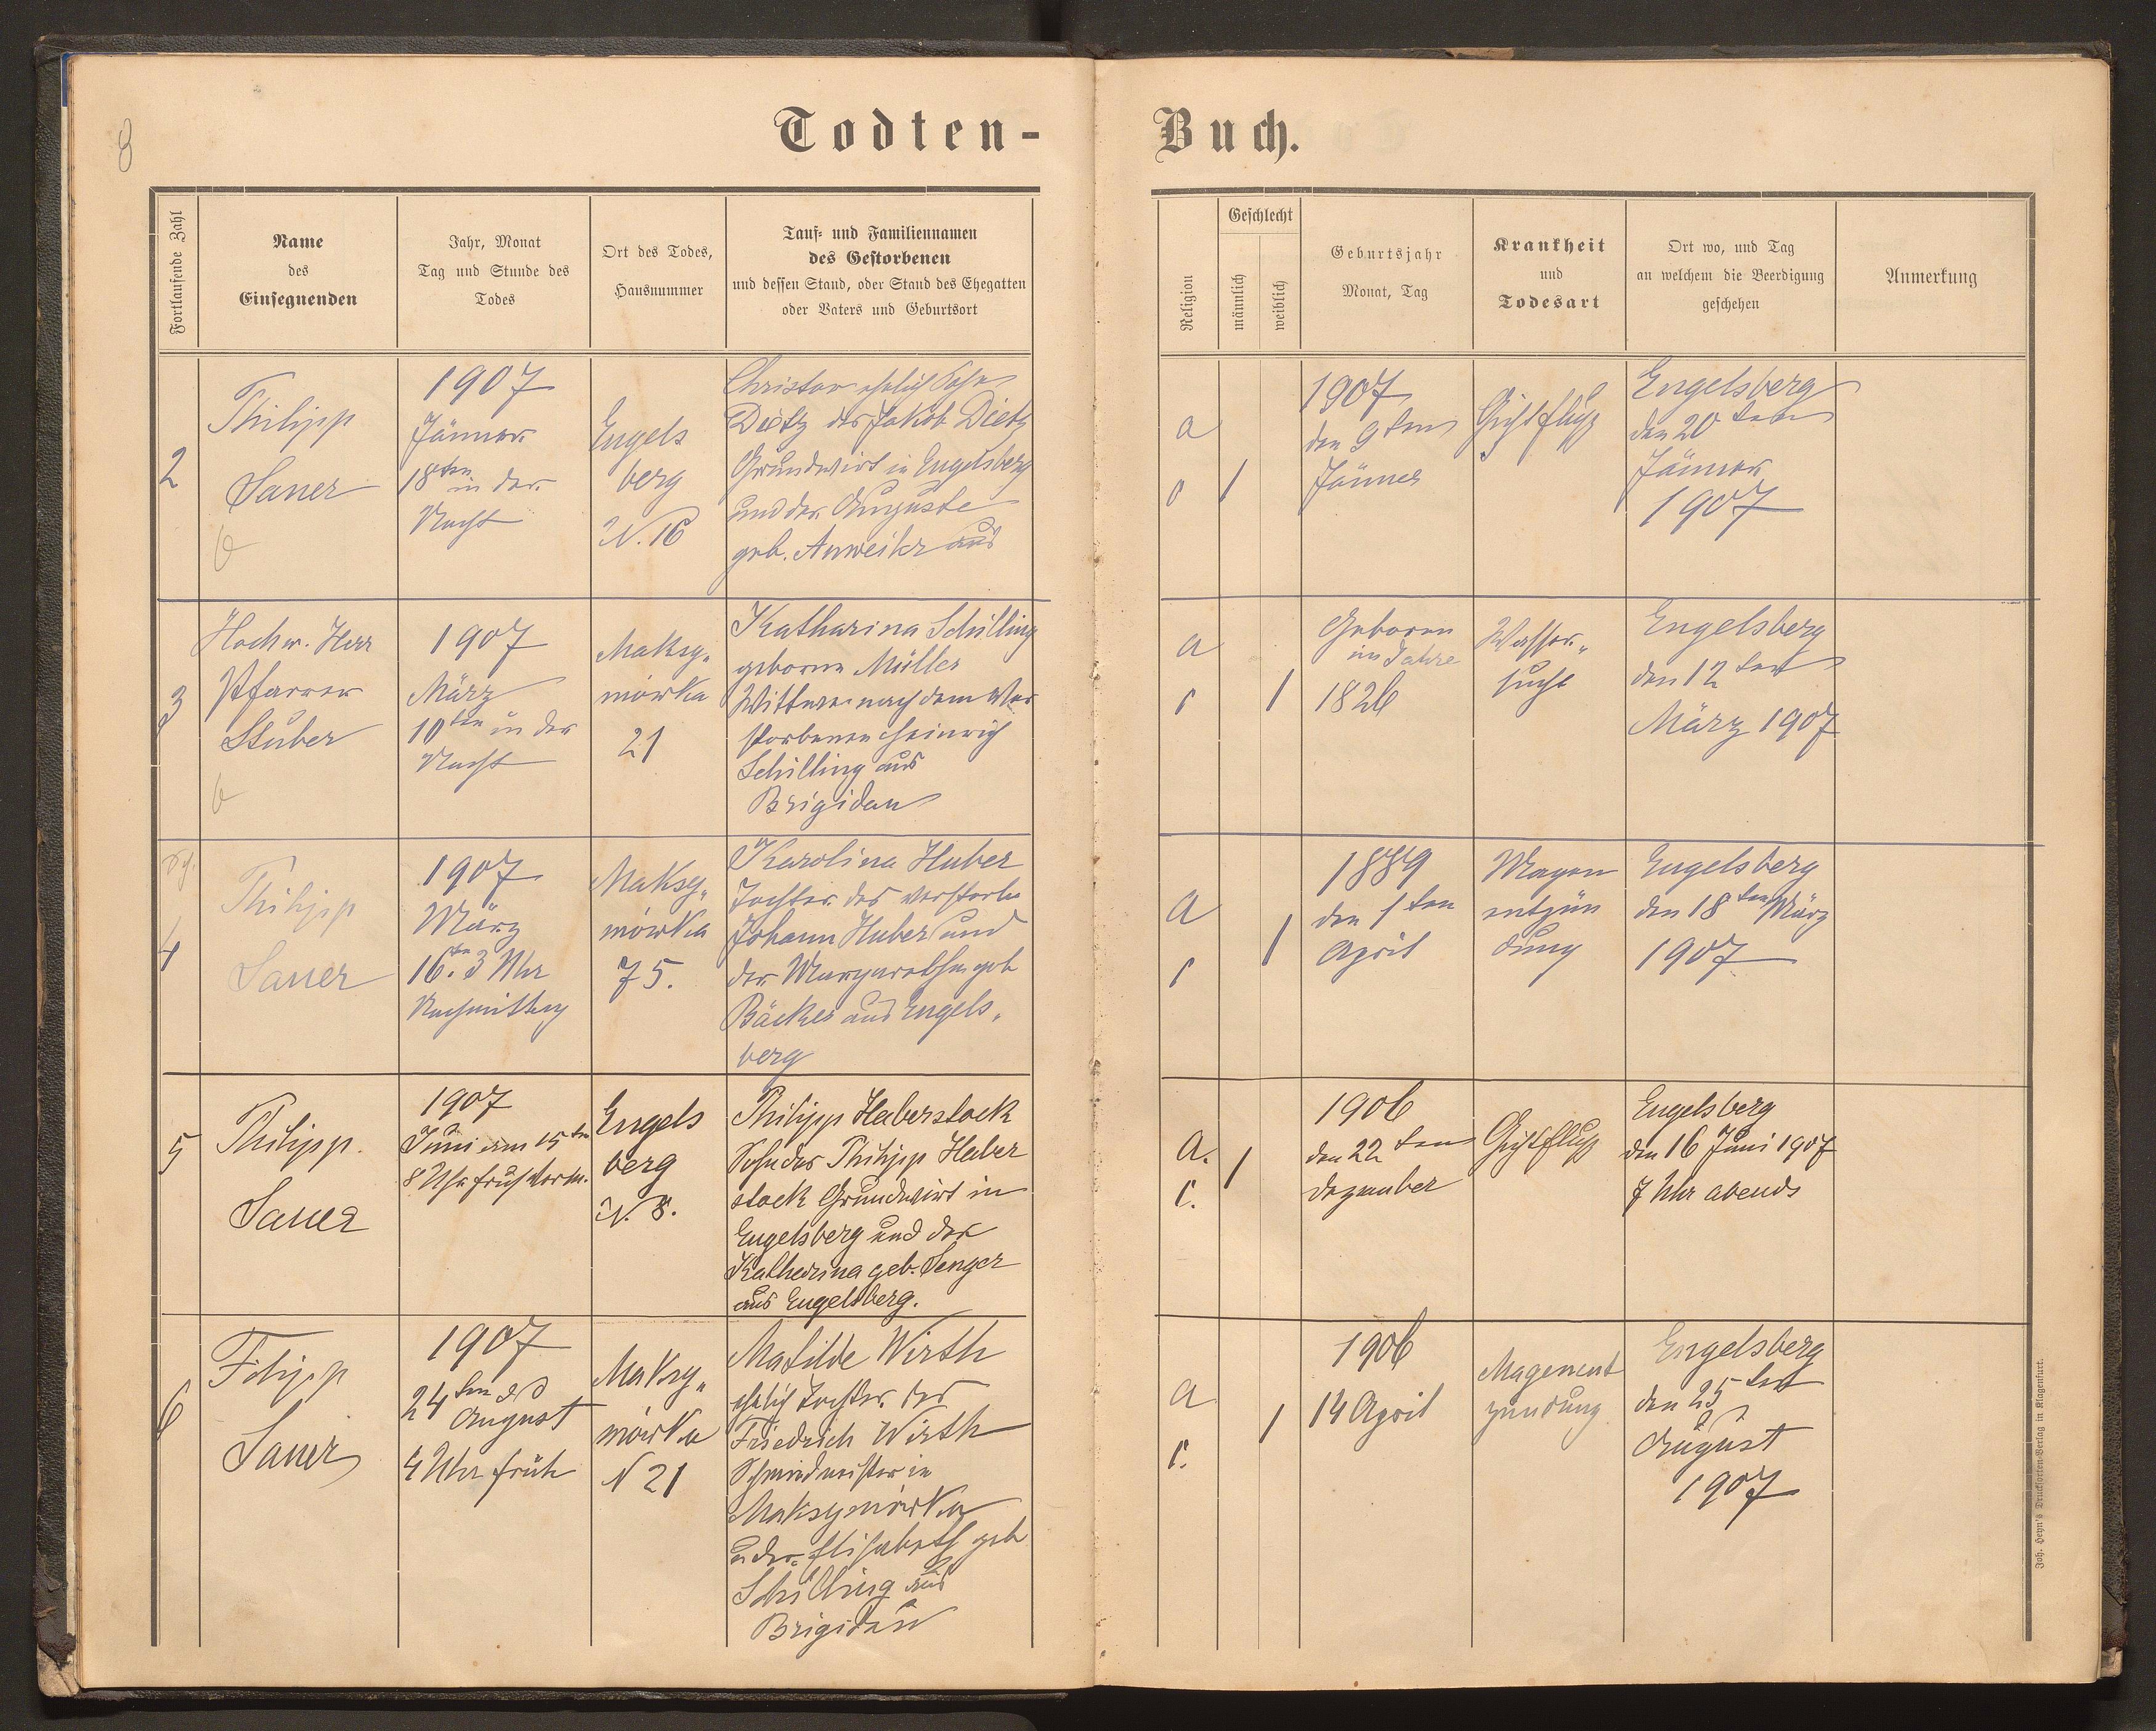 8
Todten-
Buch.
Fortlaufende Zahl
Name
des
Einsegnenden
Jahr, Monat
Tag und Stunde des
Todes
Ort des Todes,
Hausnummer
Tauf- und Familiennamen
des Gestorbenen
und dessen Stand, oder Stand des Ehegatten
oder Vaters und Geburtsort
Religion
Geschlecht
männlich
weiblich
Geburtsjahr
Monat, Tag
Krankheit
und
Todesart
Ort wo, und Tag
an welchem die Beerdigung
geschehen
Anmerkung
2
Philipp
Sauer
1907
Jänner
18ten in der
Nacht
Engels
berg
N. 16
Christian ehelich Sohn
Dietz des Jakob Dietz
Grundwirt in Engelsberg
und der Auguste
geb. Anweiler aus
a
1
1907
den 9ten
Jänner
Gichtfluß
Engelsberg
den 20ten
Jänner
1907
3
Hochw. Herr
Pfarrer
Stuber
1907
März
10ten in der
Nacht
Maksy„
mówka
21
Katharina Schilling
geborne Müller
Wittwe nach dem Ver
storbenen Heinrich
Schilling aus
Brigidau
a
r
1
Geboren
im Jahre
1826
Wasser„
sucht
Engelsberg
den 12ten
März 1907
4
Philipp
Sauer
1907
März
16ten 3 Uhr
Nachmittag
Maksy„
mówka
75.
Karolina Huber
Tochter des verstorbe
Johann Huber und
der Margarethe geb
Bäcker aus Engels„
berg
a
r
1
1889
den 1ten
April
Magen
entzün
dung
Engelsberg
den 18ten März
1907
5
Philipp.
Sauer
1907
Juni am 15ten
8 Uhr früh vorm.
Engels
berg
N. 8.
Philipp Haberstock
Sohn des Philipp Haber
stock Grundwirt in
Engelsberg und der
Katharina geb. Senger
aus Engelsberg.
a.
r.
1
1906
den 22ten
Dezember
Gichtfluß
Engelsberg
den 16 Juni 1907
7 Uhr abends
6
Filipp
Sauer
1907
24ten
August
4 Uhr früh
Maksy„
mówka
N 21
Matilde Wirth
ehelich Tochter des
Friedrich Wirth
Schmiedmeister in
Maksymówka
u der Elisabeth geb
Schilling aus
Brigidau
a
r.
1
1906
14 April
Magenent
zündung
Engelsberg
den 25ten
August
1907
Joh. Heyn's Drucksorten-Verlag in Klagenfurt.